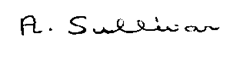 A. Sullivan